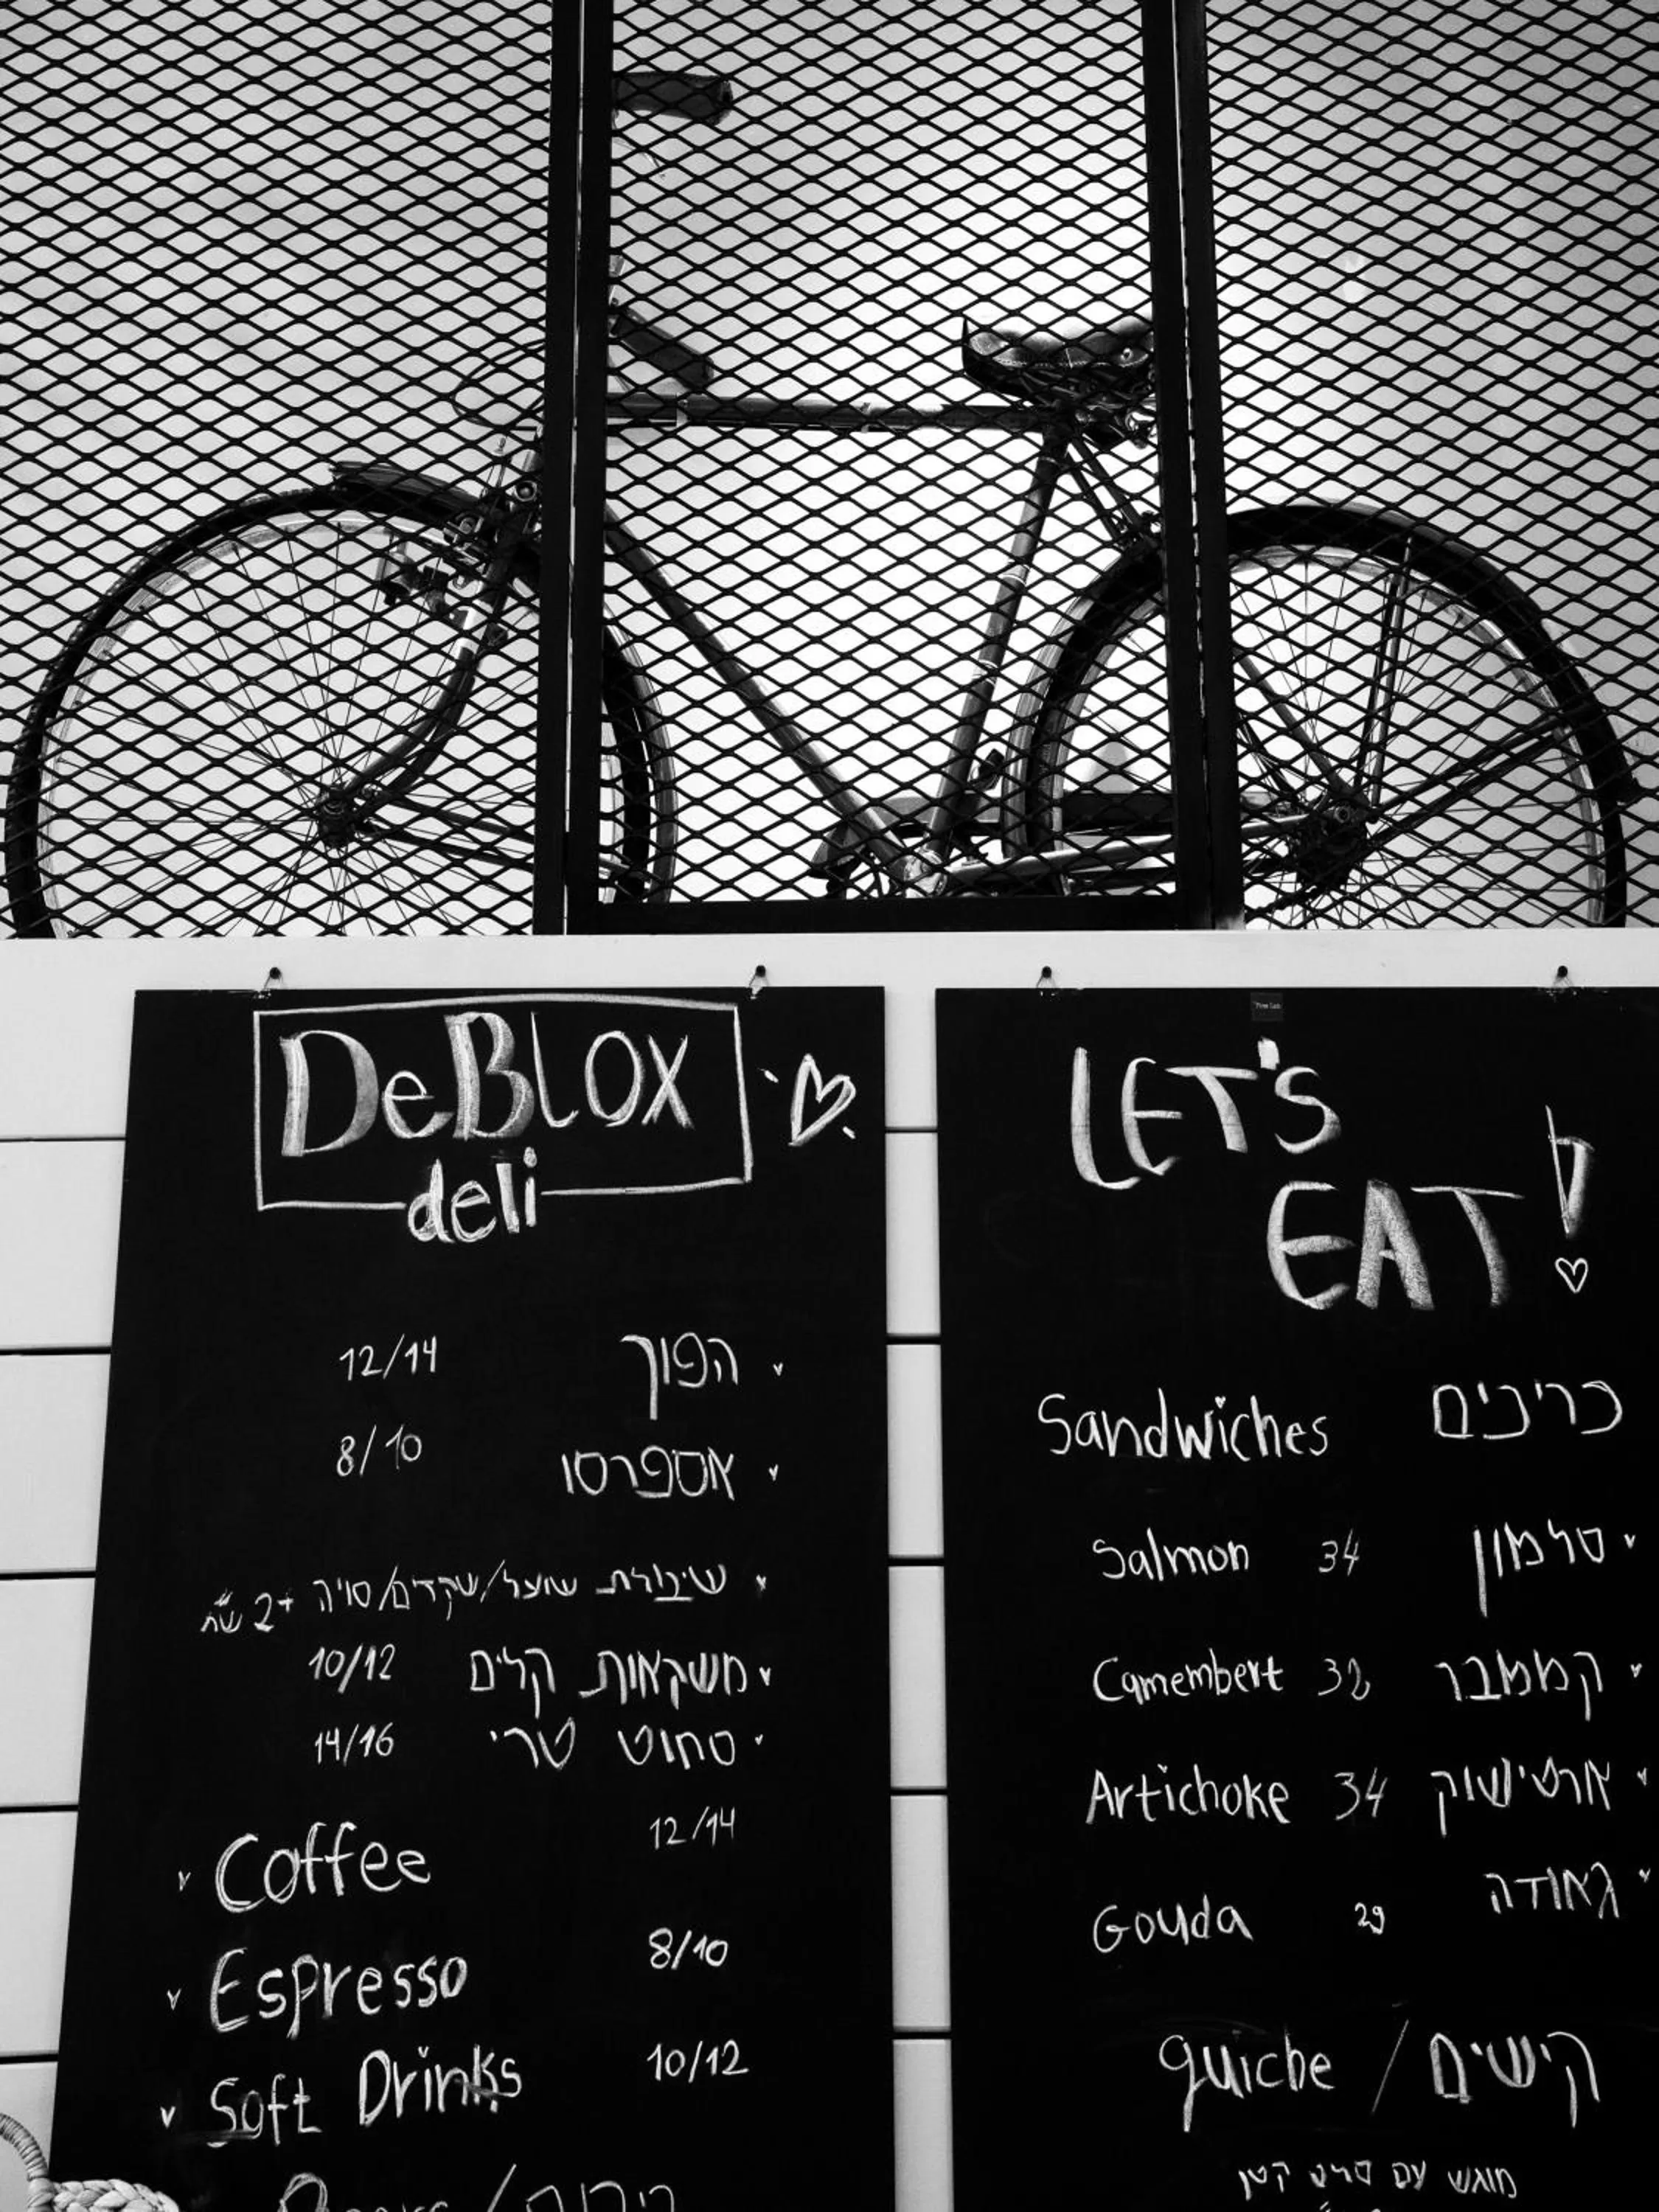 DeBLOX
deli
12/14 הפוך
8/10 אספרסו
שיבולת שועל/שקדים/סויה +2 ש"ח
10/12 משקאות קלים
14/16 סחוט טרי
Coffee 12/14
Espresso 8/10
Soft Drinks 10/12
LET'S
EAT!
Sandwiches כריכים
Salmon 34 סלמון
Camembert 32 קממבר
Artichoke 34 ארטישוק
Gouda 29 גאודה
quiche / קישים
מוגש עם סלט קטן